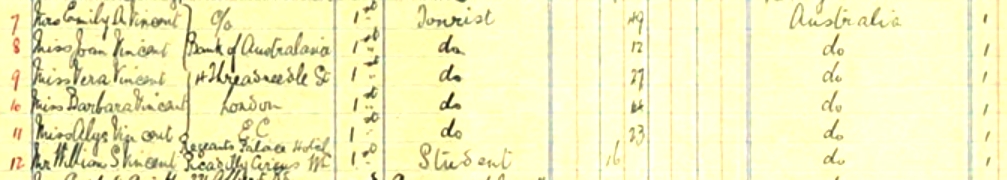 7 Mrs Emily A Vincent c/o 1st Tourist 49 Australia 1
8 Miss Joan Vincent Bank of Australasia 1st do 12 do 1
9 Miss Vera Vincent 4 Threadneedle St 1st do 27 do 1
10 Miss Barbara Vincent London 1st do do 1
11 Miss Alys Vincent E C 1st do 23 do 1
Regents Palace Hotel
12 Mr William S Vincent Picadilly Circus W 1st Student 16 do 1